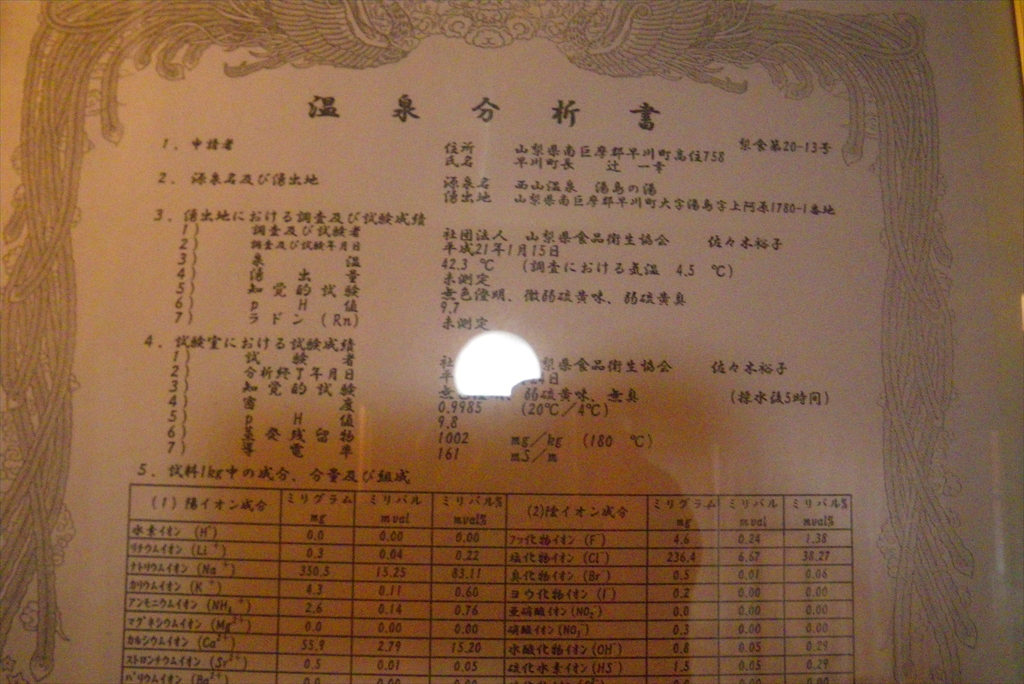 温泉分析書
梨食第20-13号
1. 申請者 住所 山梨県南巨摩郡早川町高住758
氏名 早川町長 辻 一幸
2. 源泉名及び湧出地 源泉名 西山温泉 湯島の湯
湧出地 山梨県南巨摩郡早川町大字湯島字上阿原1780-1番地
3. 湧出地における調査及び試験成績
1) 調査及び試験者 社団法人 山梨県食品衛生協会 佐々木裕子
2) 調査及び試験年月日 平成21年1月15日
3) 泉温 42.3 ℃ (調査における気温 4.5 ℃)
4) 湧出量 未測定
5) 知覚的試験 無色澄明、微弱硫黄味、弱硫黄臭
6) pH値 9.7
7) ラドン(Rn) 未測定
4. 試験室における試験成績
1) 試験者 社 梨県食品衛生協会 佐々木裕子
2) 分析終了年月日 平 日
3) 知覚的試験 無色 弱硫黄味、無臭 (採水後5時間)
4) 密度 0.9985 (20℃/4℃)
5) pH値 9.8
6) 蒸発残留物 1002 mg/kg (180 ℃)
7) 導電率 161 mS/m
5. 試料1kg中の成分、分量及び組成
(1) 陽イオン成分 ミリグラム mg ミリバル mval ミリバル% mval% (2)陰イオン成分 ミリグラム mg ミリバル mval ミリバル% mval%
水素イオン (H⁺) 0.0 0.00 0.00 フッ化物イオン (F⁻) 4.6 0.24 1.38
リチウムイオン (Li⁺) 0.3 0.04 0.22 塩化物イオン (Cl⁻) 236.4 6.67 38.27
ナトリウムイオン (Na⁺) 350.5 15.25 83.11 臭化物イオン (Br⁻) 0.5 0.01 0.06
カリウムイオン (K⁺) 4.3 0.11 0.60 ヨウ化物イオン (I⁻) 0.2 0.00 0.00
アンモニウムイオン (NH₄⁺) 2.6 0.14 0.76 亜硝酸イオン (NO₂⁻) 0.0 0.00 0.00
マグネシウムイオン (Mg²⁺) 0.0 0.00 0.00 硝酸イオン (NO₃⁻) 0.3 0.00 0.00
カルシウムイオン (Ca²⁺) 55.9 2.79 15.20 水酸化物イオン (OH⁻) 0.8 0.05 0.29
ストロンチウムイオン (Sr²⁺) 0.5 0.01 0.05 硫化水素イオン (HS⁻) 1.5 0.05 0.29
バリウムイオン (Ba²⁺)